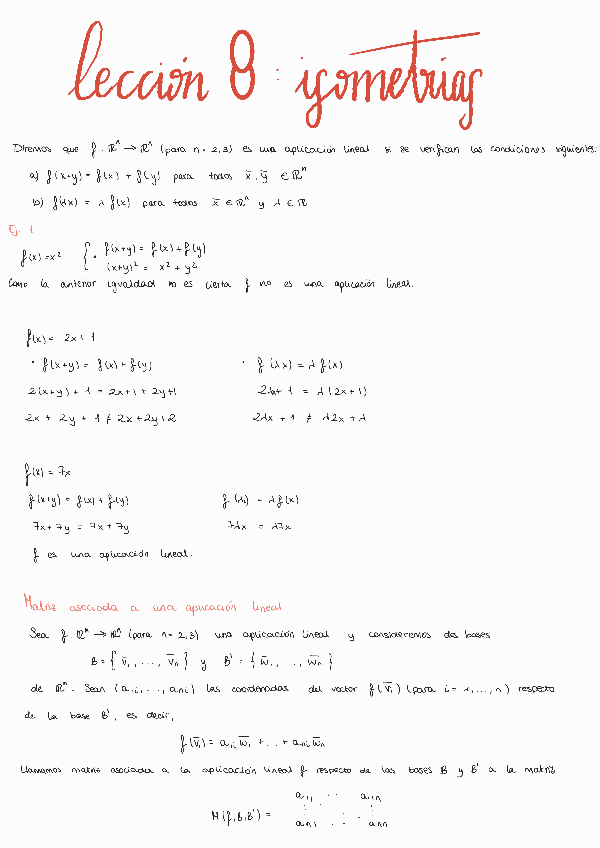 lección 8: isometrías
Diremos que f: ℝⁿ → ℝⁿ (para n = 2,3) es una aplicación lineal si se verifican las condiciones siguientes:
a) f(x+y) = f(x) + f(y) para todos x̄, ȳ ∈ ℝⁿ
b) f(λx) = λ f(x) para todos x̄ ∈ ℝⁿ y λ ∈ ℝ
Ej. 1
f(x) = x² { • f(x+y) = f(x) + f(y)
(x+y)² = x² + y²
Como la anterior igualdad no es cierta f no es una aplicación lineal.
f(x) = 2x + 1
• f(x+y) = f(x) + f(y) • f(λx) = λ f(x)
2(x+y) + 1 = 2x+1 + 2y+1 2λx + 1 = λ(2x+1)
2x + 2y + 1 ≠ 2x+2y+2 2λx + 1 ≠ λ2x + λ
f(x) = 7x
f(x+y) = f(x) + f(y) f(λx) = λf(x)
7x + 7y = 7x + 7y 7λx = λ7x
f es una aplicación lineal.
Matriz asociada a una aplicación lineal
Sea f: ℝⁿ → ℝⁿ (para n = 2,3) una aplicación lineal y consideremos dos bases
B = { v̄₁, ..., v̄ₙ } y B' = { w̄₁, ..., w̄ₙ }
de ℝⁿ. Sean (a₁ᵢ, ..., aₙᵢ) las coordenadas del vector f(v̄ᵢ) (para i = 1, ..., n) respecto
de la base B', es decir,
f(v̄ᵢ) = a₁ᵢ w̄₁ + ... + aₙᵢ w̄ₙ
Llamamos matriz asociada a la aplicación lineal f respecto de las bases B y B' a la matriz
a₁₁ ... a₁ₙ
M(f,B,B') = ⋮ ⋮
aₙ₁ ... aₙₙ